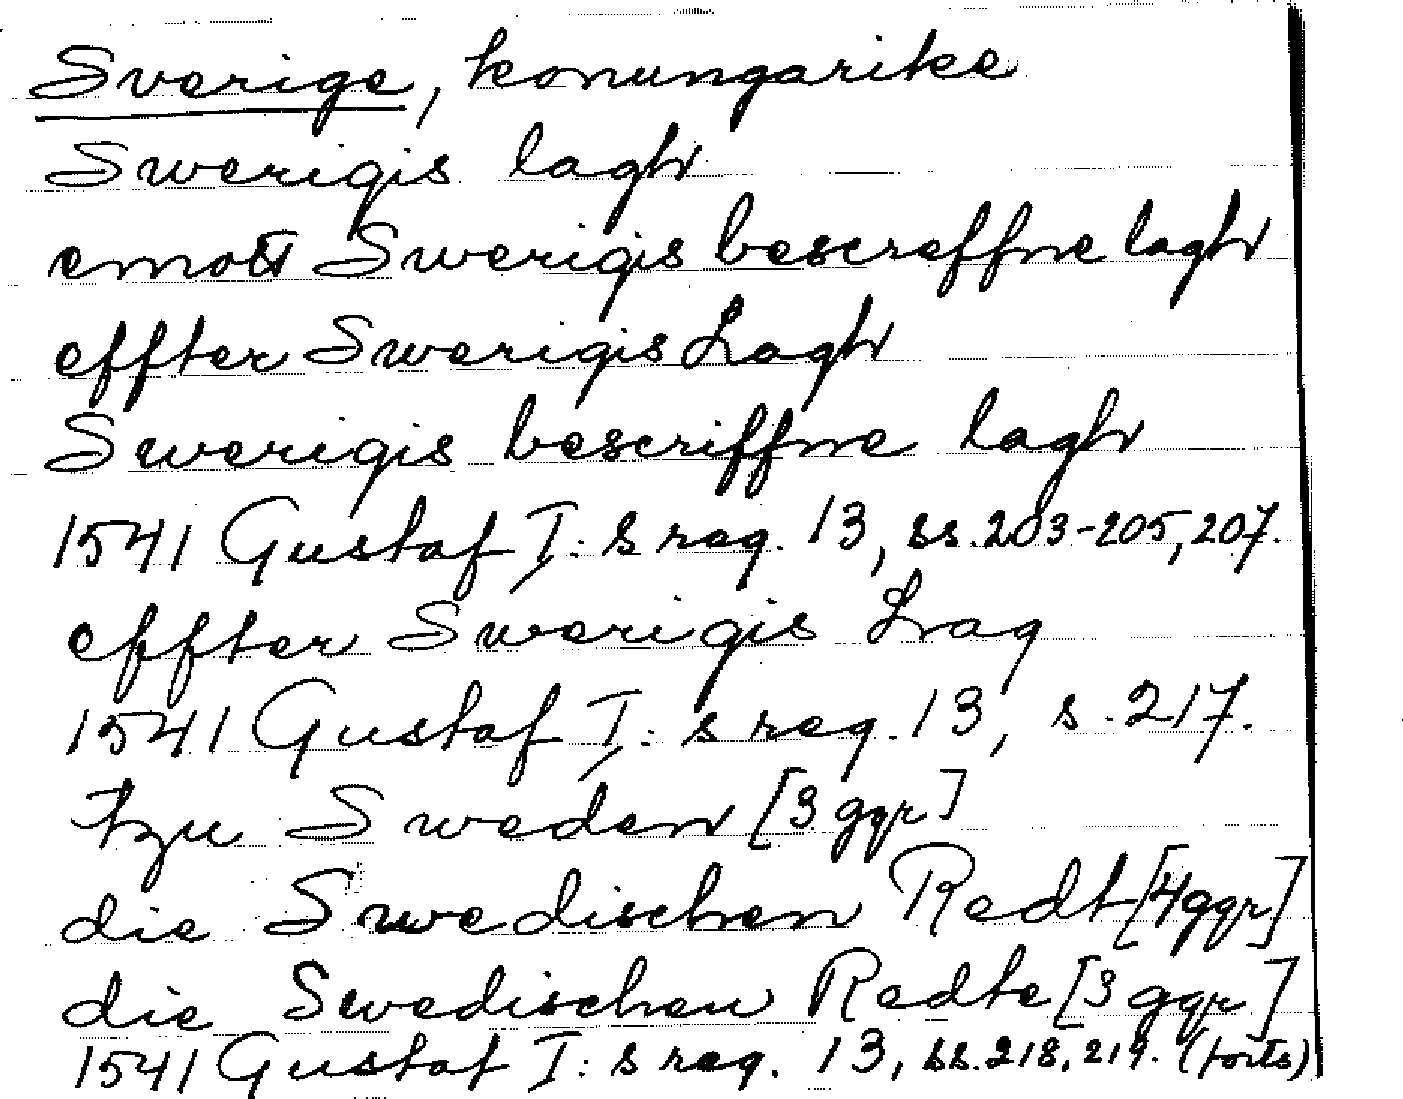 Sverige, konungarike
Swerigis lagh
emott Swerigis bescreffne lagh
effter Swerigis Lagh
Swerigis bescriffne lagh
1541 Gustaf I:s reg. 13, ss. 203-205, 207.
effter Swerigis Lrag
1541 Gustaf I:s reg. 13, s. 217.
tzu Sweden [3 ggr]
die Swedischen Redt [4 ggr]
die Swedischen Redte [3 ggr]
1541 Gustaf I:s reg. 13, ss. 218, 219. (forts)